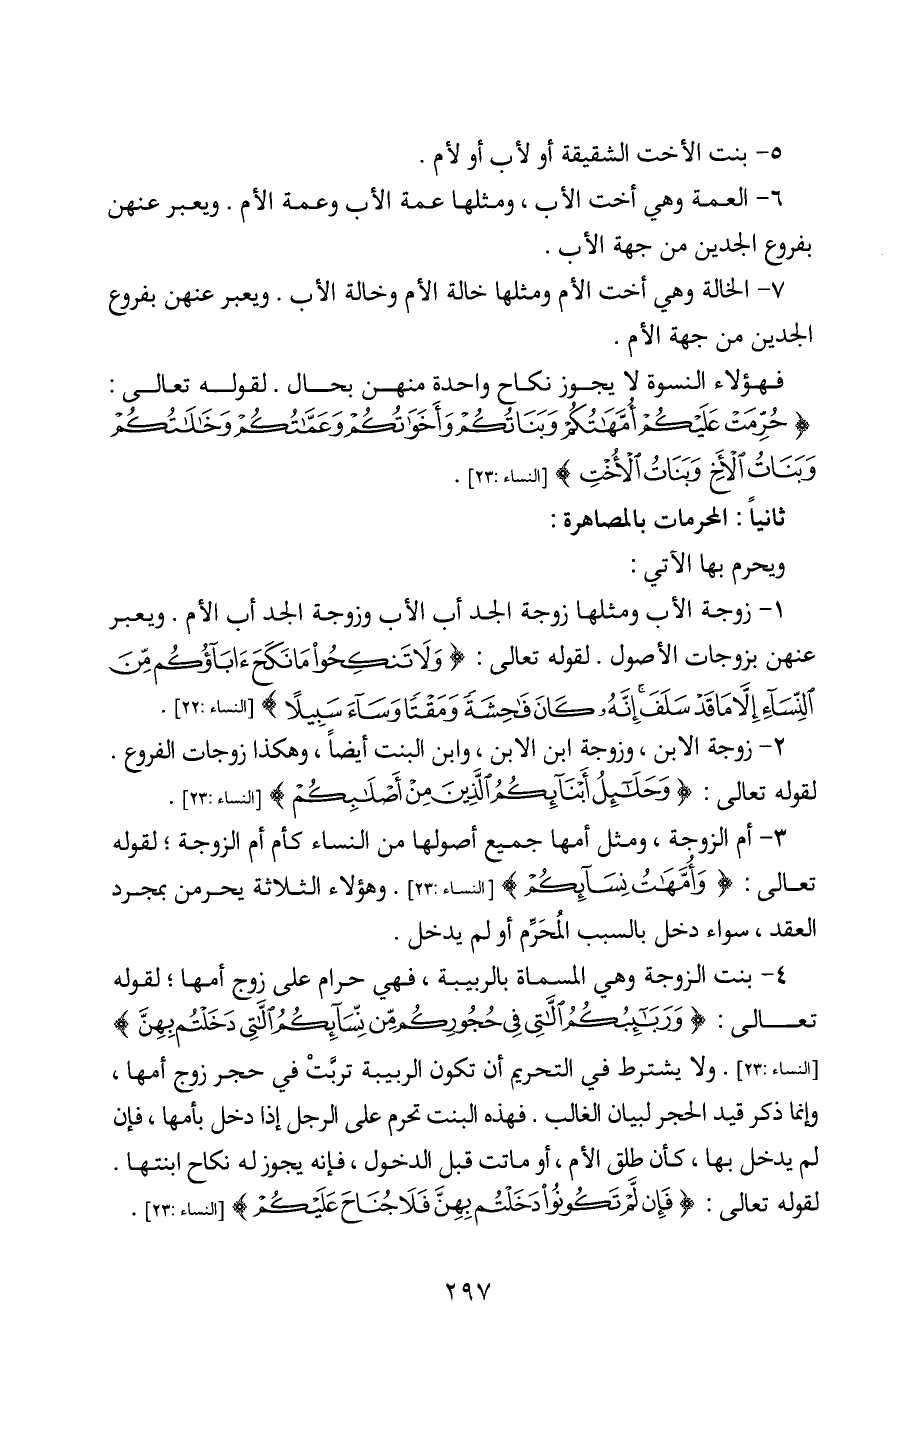 ٥- بنت الأخت الشقيقة أو لأب أو لأم .
٦- العمة وهي أخت الأب ، ومثلها عمة الأب وعمة الأم . ويعبر عنهن
بفروع الجدين من جهة الأب .
٧- الخالة وهي أخت الأم ومثلها خالة الأم وخالة الأب . ويعبر عنهن بفروع
الجدين من جهة الأم .
فهؤلاء النسوة لا يجوز نكاح واحدة منهن بحال . لقوله تعالى :
﴿ حُرِّمَتْ عَلَيْكُمْ أُمَّهَٰتُكُمْ وَبَنَاتُكُمْ وَأَخَوَٰتُكُمْ وَعَمَّٰتُكُمْ وَخَٰلَٰتُكُمْ
وَبَنَاتُ ٱلْأَخِ وَبَنَاتُ ٱلْأُخْتِ ﴾ [النساء :٢٣] .
ثانياً : المحرمات بالمصاهرة :
ويحرم بها الآتي :
١- زوجة الأب ومثلها زوجة الجد أب الأب وزوجة الجد أب الأم . ويعبر
عنهن بزوجات الأصول . لقوله تعالى : ﴿ وَلَا تَنكِحُوا۟ مَا نَكَحَ ءَابَآؤُكُم مِّنَ
ٱلنِّسَآءِ إِلَّا مَا قَدْ سَلَفَ ۚ إِنَّهُۥ كَانَ فَٰحِشَةً وَمَقْتًا وَسَآءَ سَبِيلًا ﴾ [النساء :٢٢] .
٢- زوجة الابن ، وزوجة ابن الابن ، وابن البنت أيضاً ، وهكذا زوجات الفروع .
لقوله تعالى : ﴿ وَحَلَٰٓئِلُ أَبْنَآئِكُمُ ٱلَّذِينَ مِنْ أَصْلَٰبِكُمْ ﴾ [النساء :٢٣] .
٣- أم الزوجة ، ومثل أمها جميع أصولها من النساء كأم أم الزوجة ؛ لقوله
تعالى : ﴿ وَأُمَّهَٰتُ نِسَآئِكُمْ ﴾ [النساء :٢٣] . وهؤلاء الثلاثة يحرمن بمجرد
العقد ، سواء دخل بالسبب المُحَرِّم أو لم يدخل .
٤- بنت الزوجة وهي المسماة بالربيبة ، فهي حرام على زوج أمها ؛ لقوله
تعالى : ﴿ وَرَبَٰٓئِبُكُمُ ٱلَّٰتِى فِى حُجُورِكُم مِّن نِّسَآئِكُمُ ٱلَّٰتِى دَخَلْتُم بِهِنَّ ﴾
[النساء :٢٣] . ولا يشترط في التحريم أن تكون الربيبة تربَّتْ في حجر زوج أمها ،
وإنما ذكر قيد الحجر لبيان الغالب . فهذه البنت تحرم على الرجل إذا دخل بأمها ، فإن
لم يدخل بها ، كأن طلق الأم ، أو ماتت قبل الدخول ، فإنه يجوز له نكاح ابنتها .
لقوله تعالى : ﴿ فَإِن لَّمْ تَكُونُوا۟ دَخَلْتُم بِهِنَّ فَلَا جُنَاحَ عَلَيْكُمْ ﴾ [النساء :٢٣] .
٢٩٧